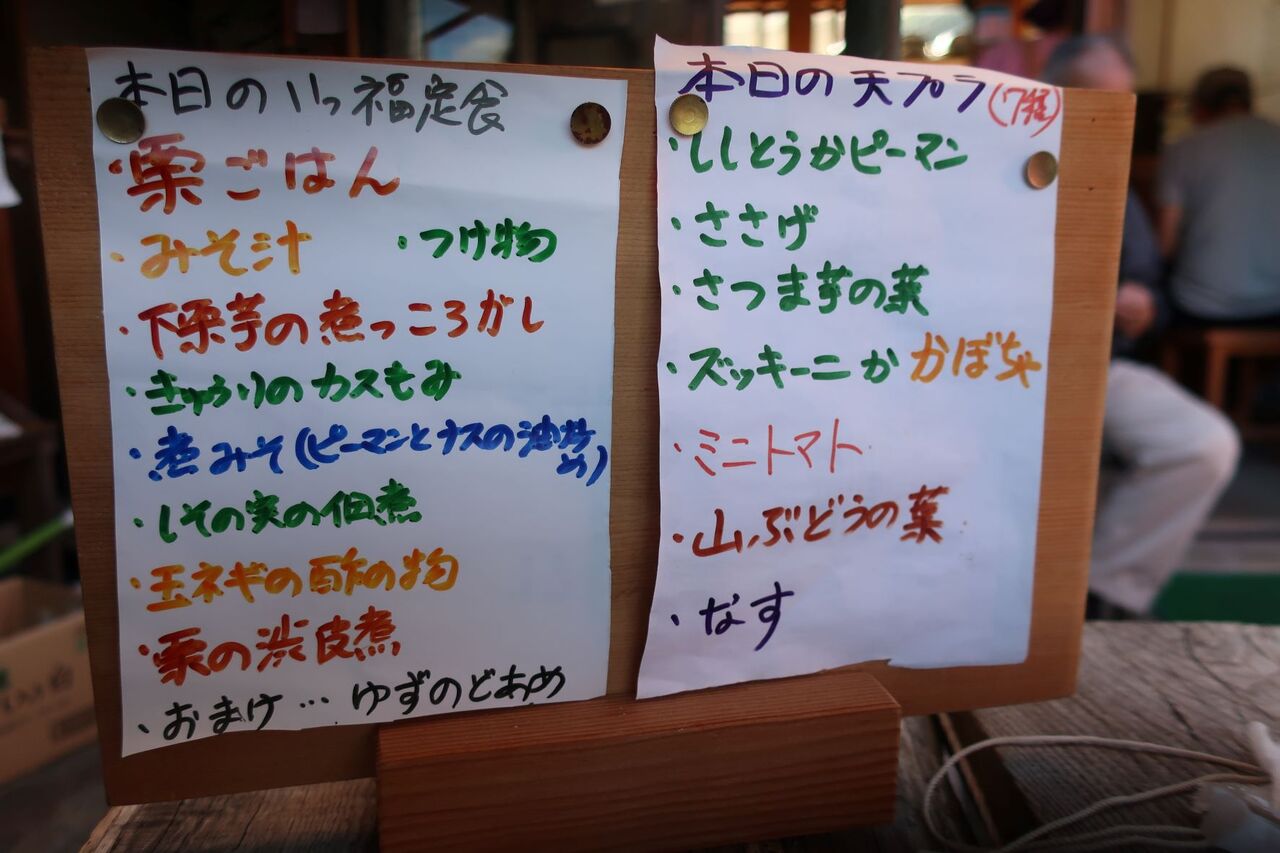 本日のいっ福定食
・栗ごはん
・みそ汁 ・つけ物
・下栗芋の煮っころがし
・きゅうりのカスもみ
・煮みそ(ピーマンとナスの油炒め)
・しその実の佃煮
・玉ネギの酢の物
・栗の渋皮煮
・おまけ…ゆずのどあめ
本日の天プラ(7種)
・ししとうかピーマン
・ささげ
・さつま芋の葉
・ズッキーニかかぼちゃ
・ミニトマト
・山ぶどうの葉
・なす